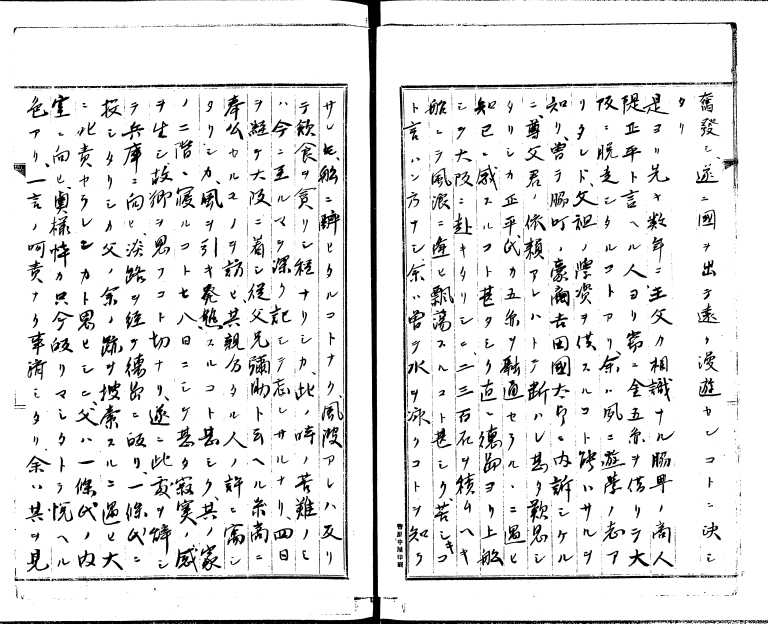 奮發シ遂ニ國ヲ出テ遠ク漫遊センコトニ決シ
タリ
是ヨリ先キ数年ニ主父カ相識ナル脇町ノ商人
隄正平ト言ヘル人ヨリ常ニ金五糸ヲ借リテ大
阪ニ脱走シタルコトアリ余ハ風ニ遊学ノ志ア
リタレド父祖ノ學資ヲ供スルコト能ハサルヲ
知リ曽テ脇町ノ豪商吉田國太郎ニ内訴シケル
ニ尊父君ノ依頼アレハトテ断ハレ甚タ歎息シ
タリシカ正平氏カ五糸ヲ融通セラルヽニ遇ヒ
知己ニ感スルコト甚タシク直ニ徳島ヨリ上船
シテ大阪ニ赴キタリシニ二三百石ヲ積ムヘキ
船ニテ風浪ニ逢ヒ飄蕩スルコト甚シク苦シキコ
ト言ハン方ナシ余ハ曽テ水ヲ泳クコトヲ知ラ
サレ𪜈船ニ酔ヒタルコトナク風波アレハ反リ
テ飲食ヲ貪リシ程ナリシカ此ノ時ノ苦難ノミ
ハ今ニ至ルマテ深ク記シテ忘レサルナリ四日
ヲ経テ大阪ニ着シ従父兄彌助ト云ヘル糸商ニ
奉公セルモノヲ訪ヒ其親分タル人ノ許ニ寓シ
タリシカ風ヲ引キ發熱スルコト甚シク其ノ家
ノ二階ニ寝ルコト七八日ニシテ甚タ寂寞ノ感
ヲ生シ故郷ヲ思フコト切ナリ遂ニ此家ヲ辞シ
テ兵庫ニ向ヒ淡路ヲ経テ德島ニ皈リ一條氏ニ
投シタリシカ父ノ余ノ跡ヲ捜索スルニ遇ヒ大
ニ叱責セラレンカト思ヒシニ父ハ一條氏ノ内
室ニ向ヒ奥様悴カ只今皈リマシタトテ悦ヘル
色アリ一言ノ呵責ナク事済ミタリ余ハ其ヲ見